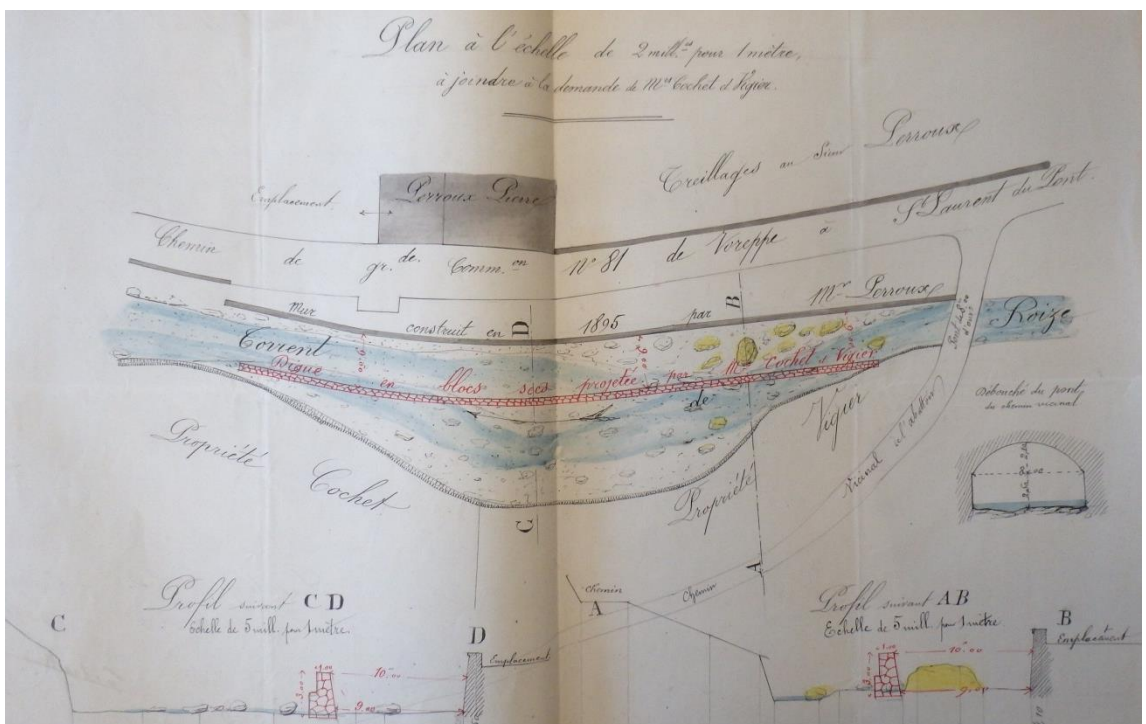 Plan à l'échelle de 2 mill.es pour 1 mètre,
à joindre à la demande de Mrs Cochet et Vigier.
Treillages au Sieur Perroux
Emplacement
Perroux Pierre
St Laurent du Pont.
Chemin de gr. de. Comm.on No 81 de Voreppe à
Mur construit en 1895 par Mr Perroux
D
B
Torrent de
Roize
Digue en blocs secs projetée par Mrs Cochet et Vigier
Propriété Cochet
Propriété Vigier
Vicinal à l'abattoir
Chemin
Débouché du pont
du chemin vicinal
8.00
C
A
Profil suivant C D
Echelle de 5 mill. pour 1 mètre.
C
D
Emplacement
1.00
10.00
3.00
9.00
Chemin
A
Profil suivant A B
Echelle de 5 mill. pour 1 mètre
B
Emplacement
1.00
10.00
9.00